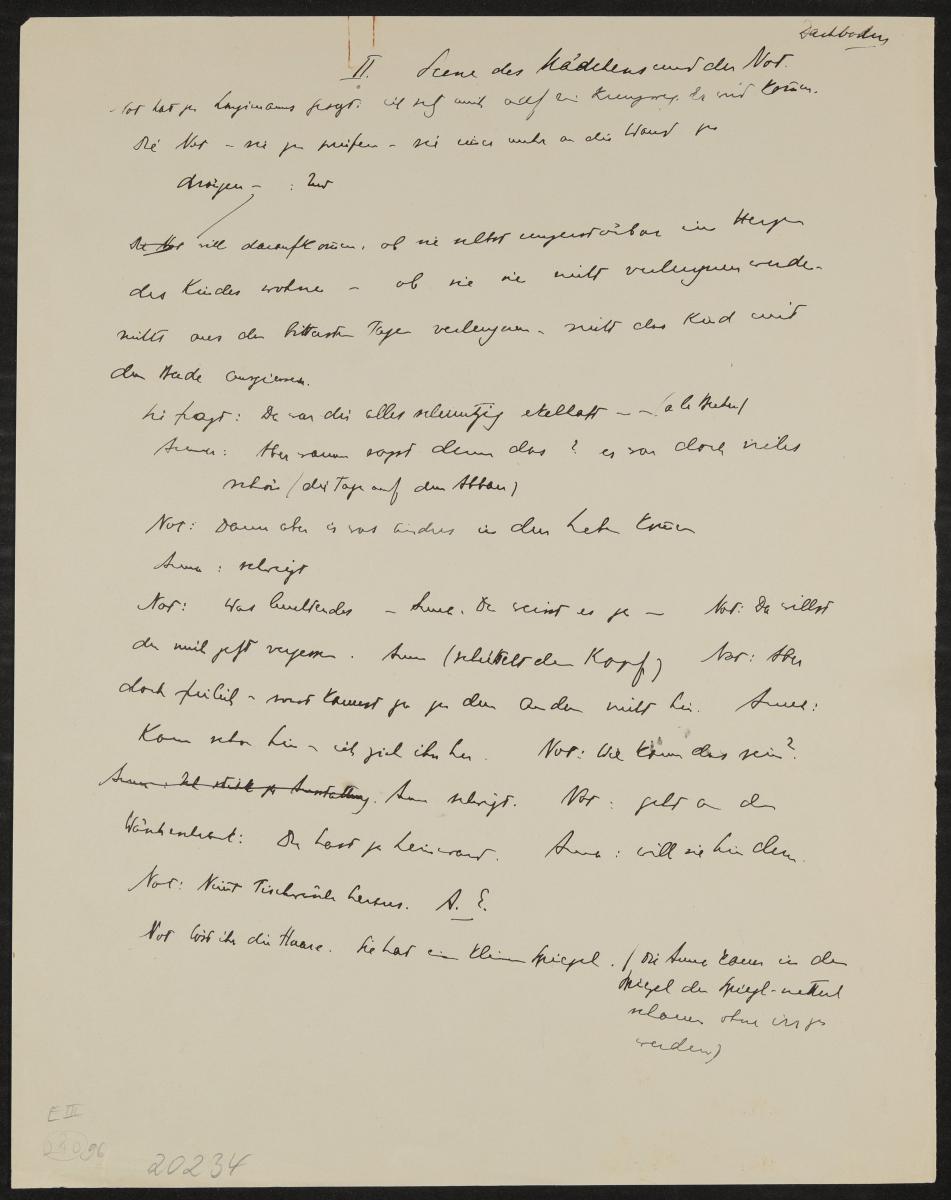 Dachboden
II. Scene des Mädchens und der Not.
Not hat zu gesagt: ich seh mich auf ein Kreuzweg. Da wird komm.
Die Not – sie zu prüfen – sie immer mehr an die Wand zu
drängen – :
Die Not will daraufkommen, ob sie selbst unzerstörbar im Herzen
des Kindes wohne – ob sie sie nicht verleugnen werde –
nichts aus den bittersten Tagen verleugnen – nicht das Kind mit
dem Bade ausgiessen.
Sie fragt: Da war dir alles schmutzig ekelhaft – – (als
Anna: Aber warum sagst denn das? es war doch vieles
schön (die Tage auf dem
Not: Dann aber is was andres in dein Leben kommen
Anna: schweigt
Not: Was leuchtendes – Anna. Du weisst es ja – Not: Da willst
du mich jetzt vergessen. Anna (schüttelt den Kopf) Not: Aber
doch freilich – sonst kannst ja zu dem andern nicht hin. Anna:
Kann schon hin – ich zieh ihn her. Not: Wie kann das sein?
Anna: Ich stick zu Ausstattung. Anna schweigt. Not: geht an den
Wäscheschrank: Du hast ja Leinwand. Anna: will sie hindern.
Not: Nimt Tischwäsche heraus. A. E.
Not löst ihr die Haare. Sie hat ein kleinen Spiegel. (Die Anna kann in den
Spiegel der Spiegel-
schauen ohne irr zu
werden)
E III
96
20234